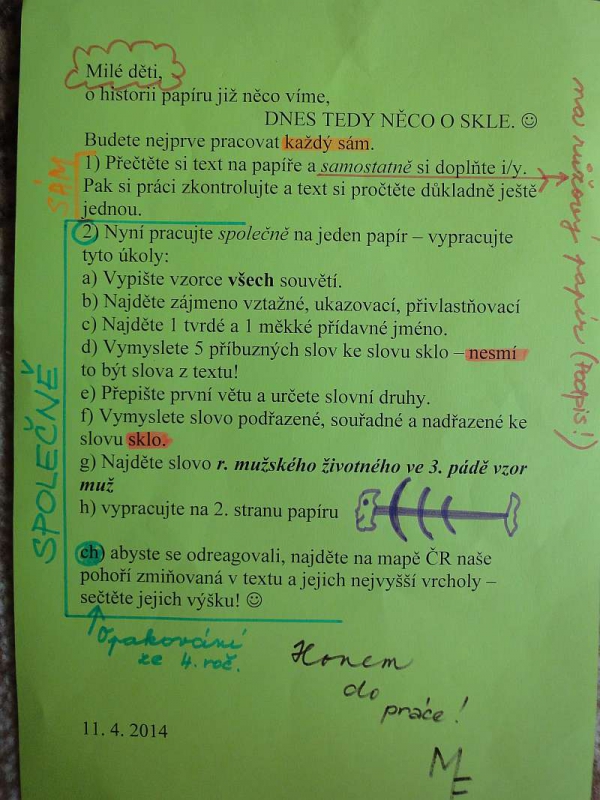 Milé děti,
o historii papíru již něco víme,
DNES TEDY NĚCO O SKLE. ☺
Budete nejprve pracovat každý sám.
1) Přečtěte si text na papíře a samostatně si doplňte i/y.
Pak si práci zkontrolujte a text si pročtěte důkladně ještě
jednou.
SÁM
na růžový papír (Podpis!)
2) Nyní pracujte společně na jeden papír – vypracujte
tyto úkoly:
a) Vypište vzorce všech souvětí.
b) Najděte zájmeno vztažné, ukazovací, přivlastňovací
c) Najděte 1 tvrdé a 1 měkké přídavné jméno.
d) Vymyslete 5 příbuzných slov ke slovu sklo – nesmí
to být slova z textu!
e) Přepište první větu a určete slovní druhy.
f) Vymyslete slovo podřazené, souřadné a nadřazené ke
slovu sklo.
g) Najděte slovo r. mužského životného ve 3. pádě vzor
muž
h) vypracujte na 2. stranu papíru
ch) abyste se odreagovali, najděte na mapě ČR naše
pohoří zmiňovaná v textu a jejich nejvyšší vrcholy –
sečtěte jejich výšku! ☺
SPOLEČNĚ
Opakování
ze 4. roč.
Honem
do
práce!
11. 4. 2014
ME